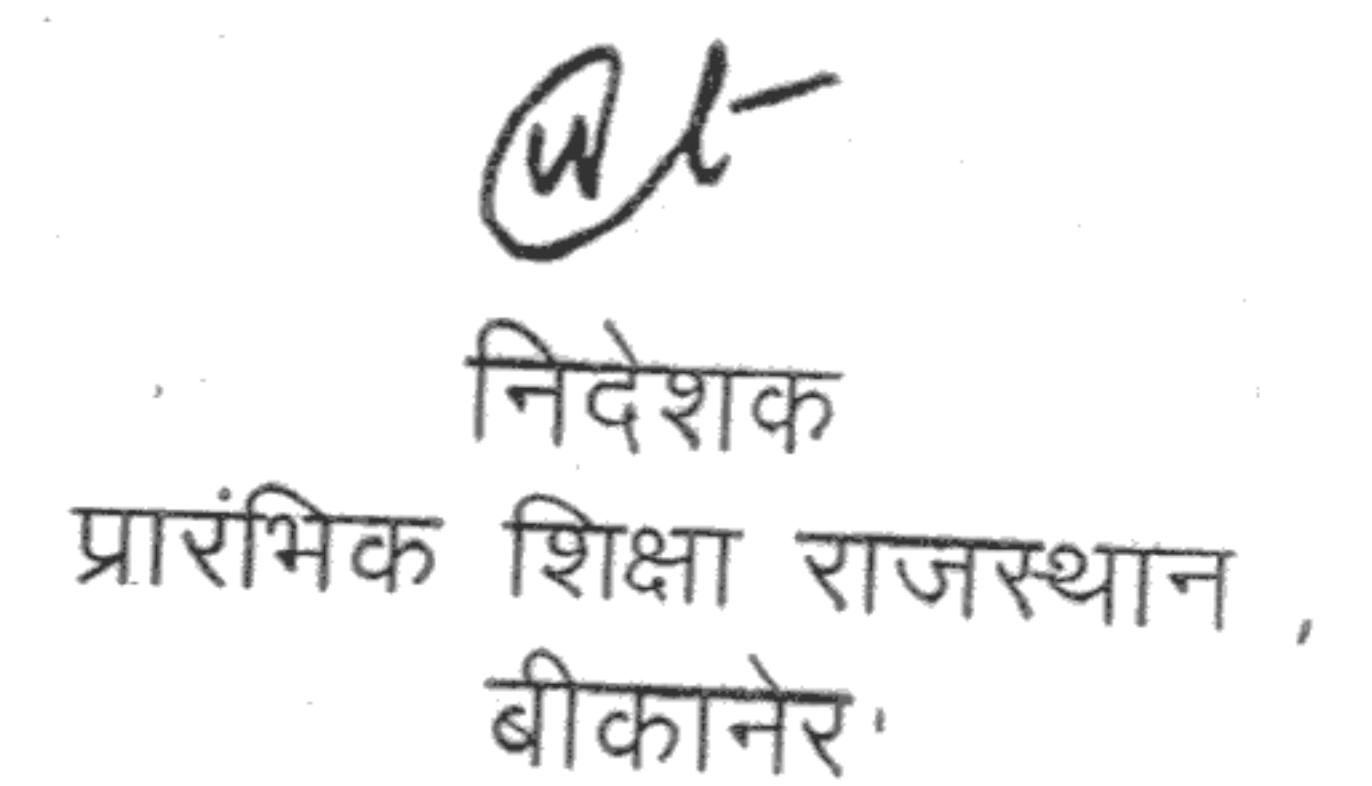 निदेशक
प्रारंभिक शिक्षा राजस्थान ,
बीकानेर